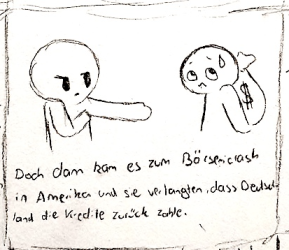 $
Doch dann kam es zum Börsencrash
in Amerika und sie verlangten, dass Deutsch
land die Kredite zurück zahle.